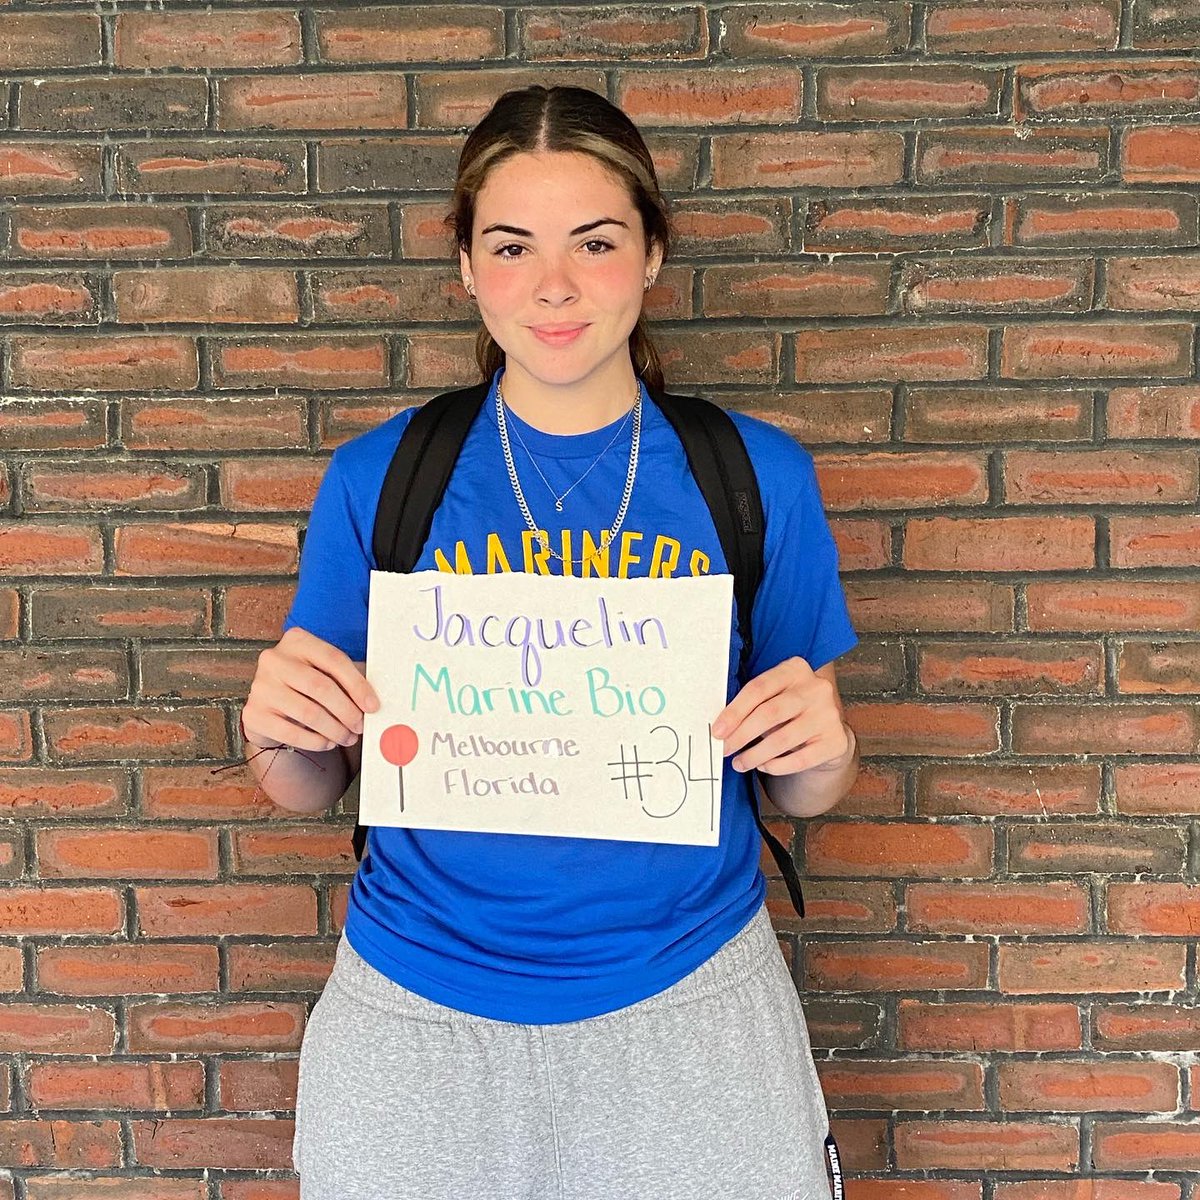 S
MARINERS
Jacquelin
Marine Bio
Melbourne
Florida
#34